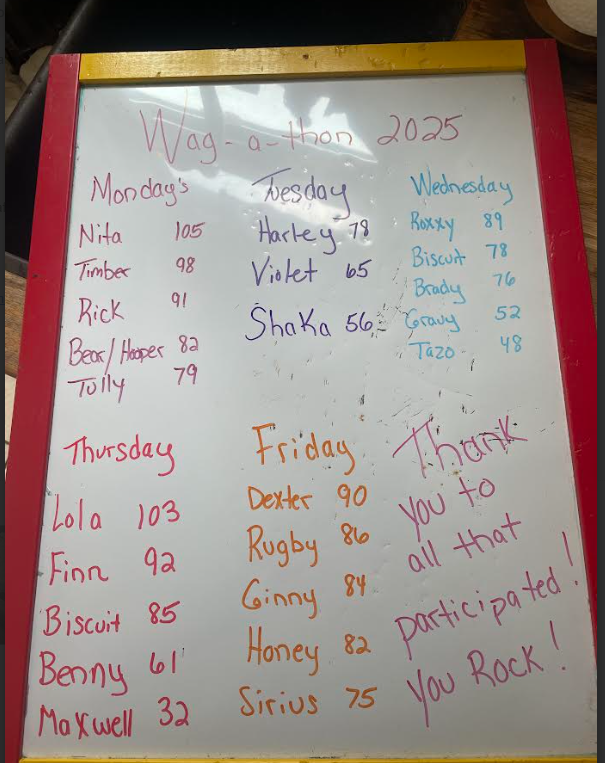 Wag-a-thon 2025
Monday's
Nita 105
Timber 98
Rick 91
Bear/Hooper 82
Tully 79
Tuesday
Harley 78
Violet 65
Shaka 56
Wednesday
Roxxy 89
Biscuit 78
Brady 76
Gravy 52
Tazo 48
Thursday
Lola 103
Finn 92
Biscuit 85
Benny 61
Maxwell 32
Friday
Dexter 90
Rugby 86
Ginny 84
Honey 82
Sirius 75
Thank
you to
all that
participated!
You Rock!